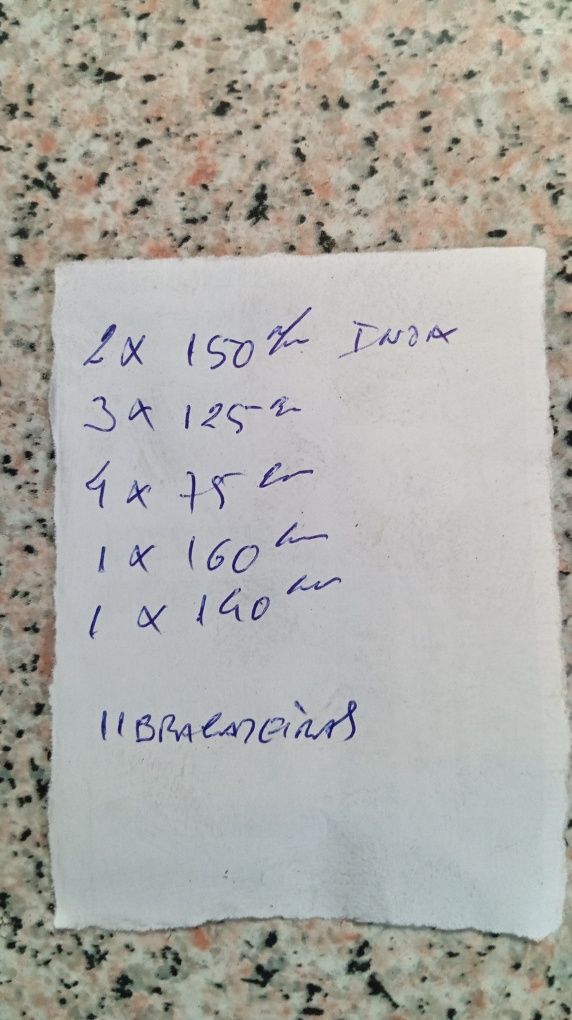 2 x 150 cm INOX
3 x 125 cm
4 x 75 cm
1 x 160 cm
1 x 140 cm
11 BRAÇADEIRAS